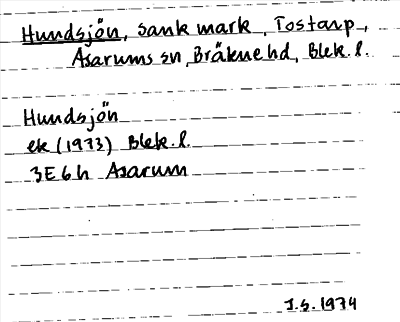 Hundsjön, sank mark, Tostarp,
Asarums sn, Bräkne hd, Blek. l.
Hundsjön
ek (1973) Blek. l.
3E6h Asarum
J.S. 1974